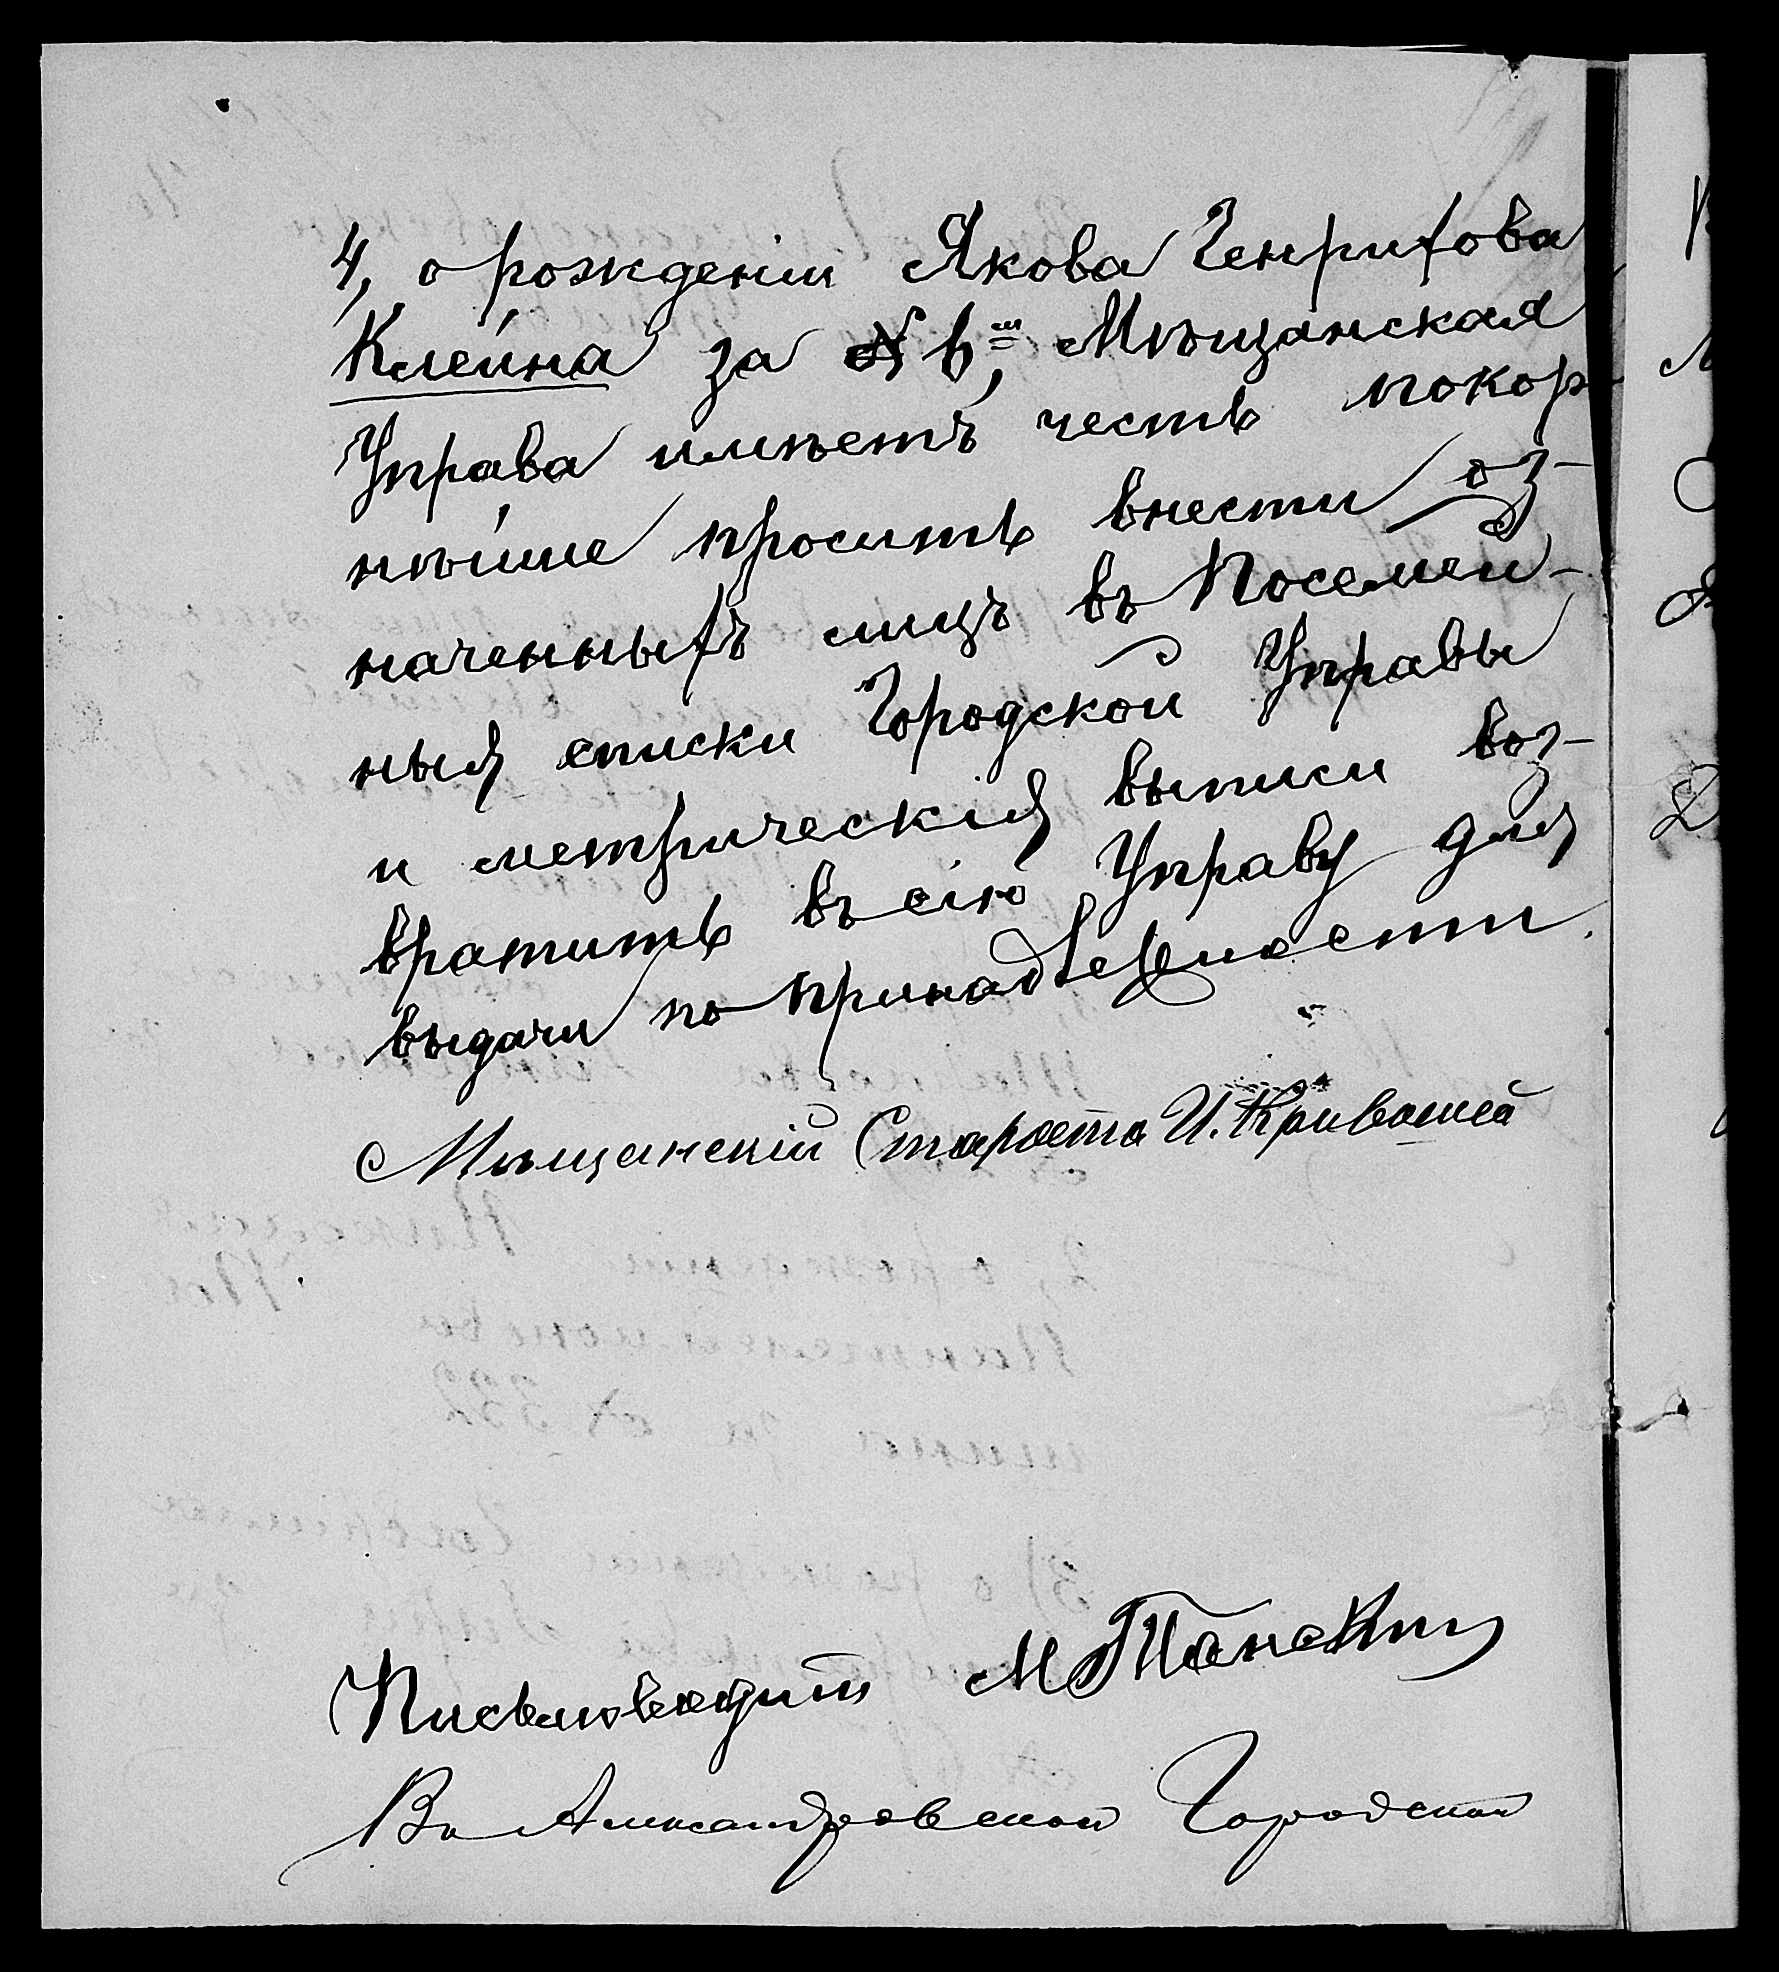 4, о рожденіи Якова Генрихова
Клейна за № 6=ш, Мѣщанская
Управа имѣетъ честь покор-
нѣйше просить внести оз-
наченныхъ лицъ въ Посемей-
ныя списки Городской Управы
и метрическія выписи воз-
вратить въ сію Управу для
выдачи по принадлежности.
Мѣщанскій Староста И. Кривошей
Письмоводит М
Въ Александровской Городской